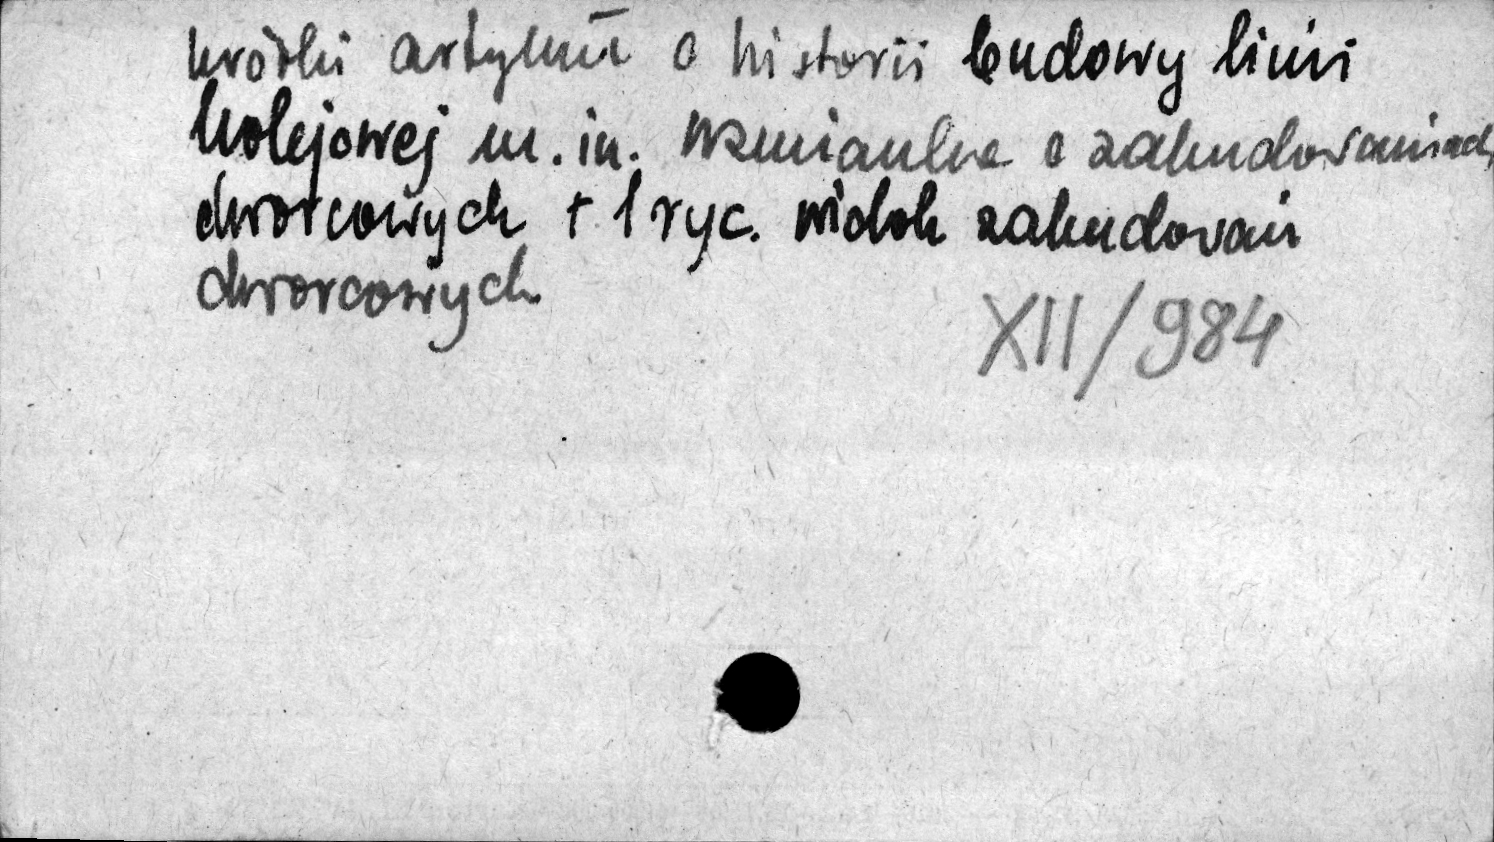 krótki artykuł o historii budowy linii
kolejowej m.in. wzmianka o zabudowaniach
dworcowych + 1 ryc. widok zabudowań
dworcowych.
XII/984